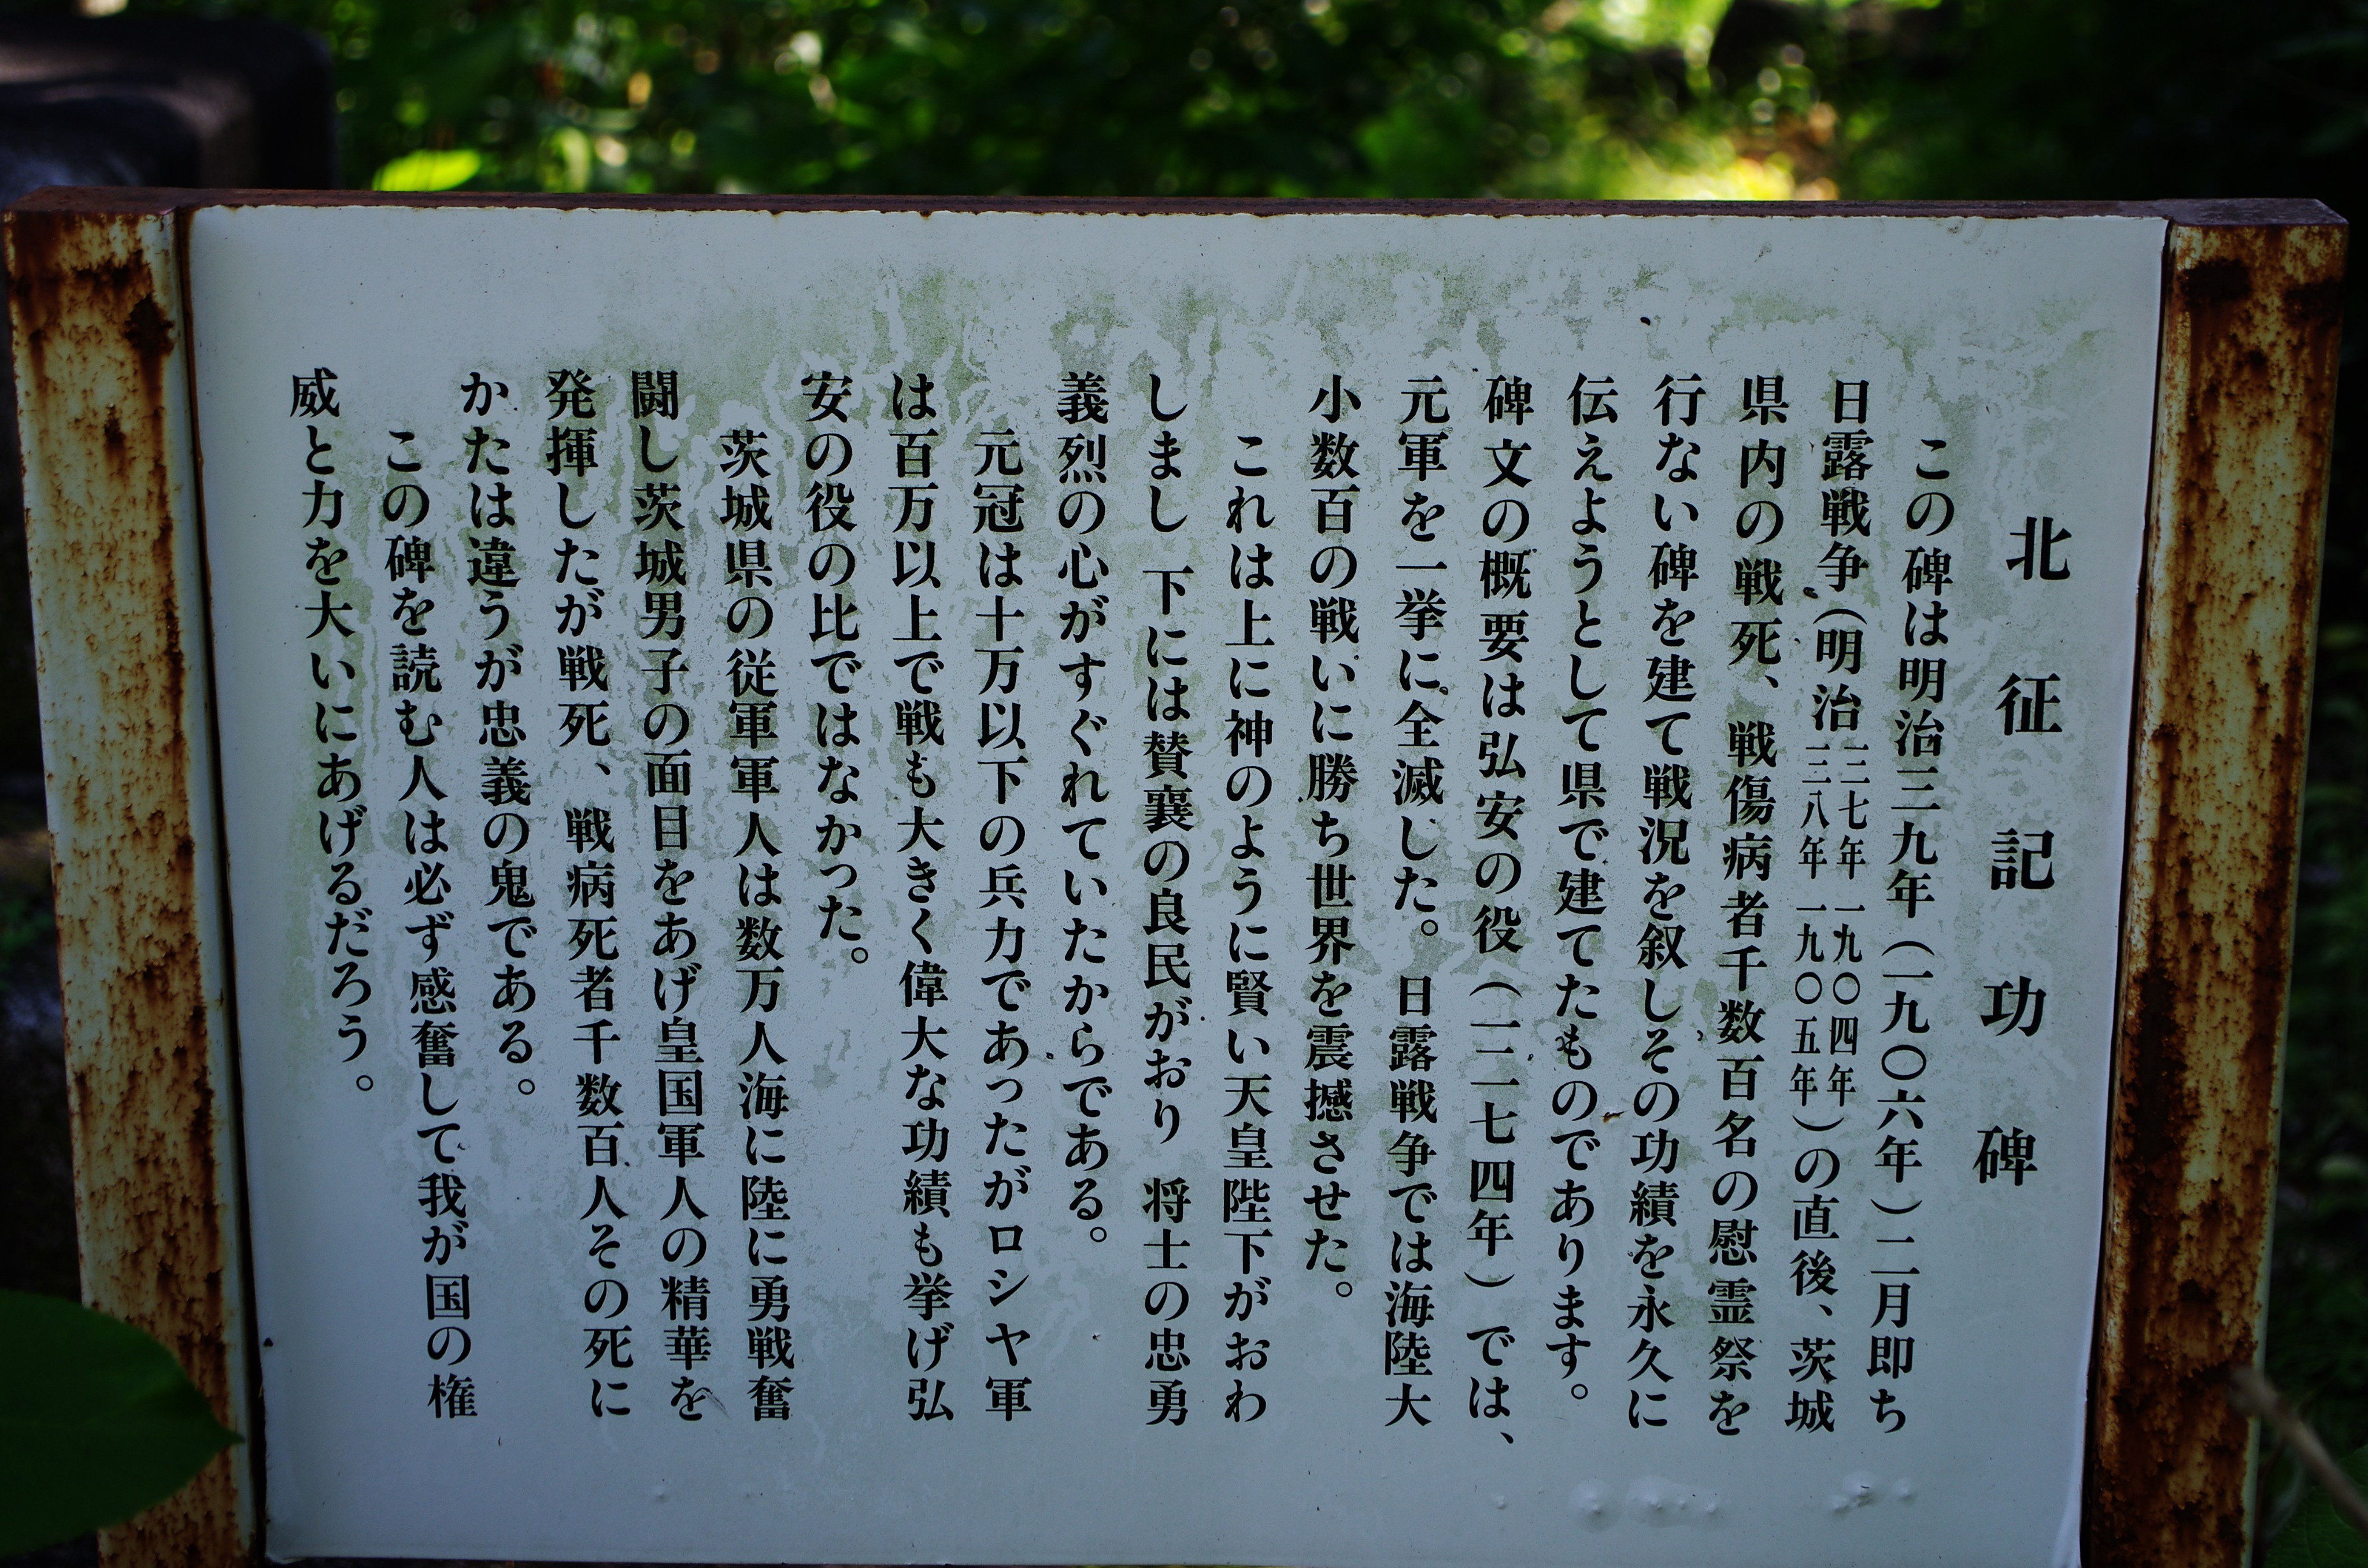 北征記功碑
この碑は明治三九年（一九〇六年）二月即ち
日露戦争（明治三七年一九〇四年三八年一九〇五年）の直後、茨城
県内の戦死、戦傷病者千数百名の慰霊祭を
行ない碑を建て戦況を叙しその功績を永久に
伝えようとして県で建てたものであります。
碑文の概要は弘安の役（一二七四年）では、
元軍を一挙に全滅した。日露戦争では海陸大
小数百の戦いに勝ち世界を震撼させた。
これは上に神のように賢い天皇陛下がおわ
しまし 下には賛襄の良民がおり 将士の忠勇
義烈の心がすぐれていたからである。
元冠は十万以下の兵力であったがロシヤ軍
は百万以上で戦も大きく偉大な功績も挙げ弘
安の役の比ではなかった。
茨城県の従軍軍人は数万人海に陸に勇戦奮
闘し茨城男子の面目をあげ皇国軍人の精華を
発揮したが戦死、戦病死者千数百人その死に
かたは違うが忠義の鬼である。
この碑を読む人は必ず感奮して我が国の権
威と力を大いにあげるだろう。